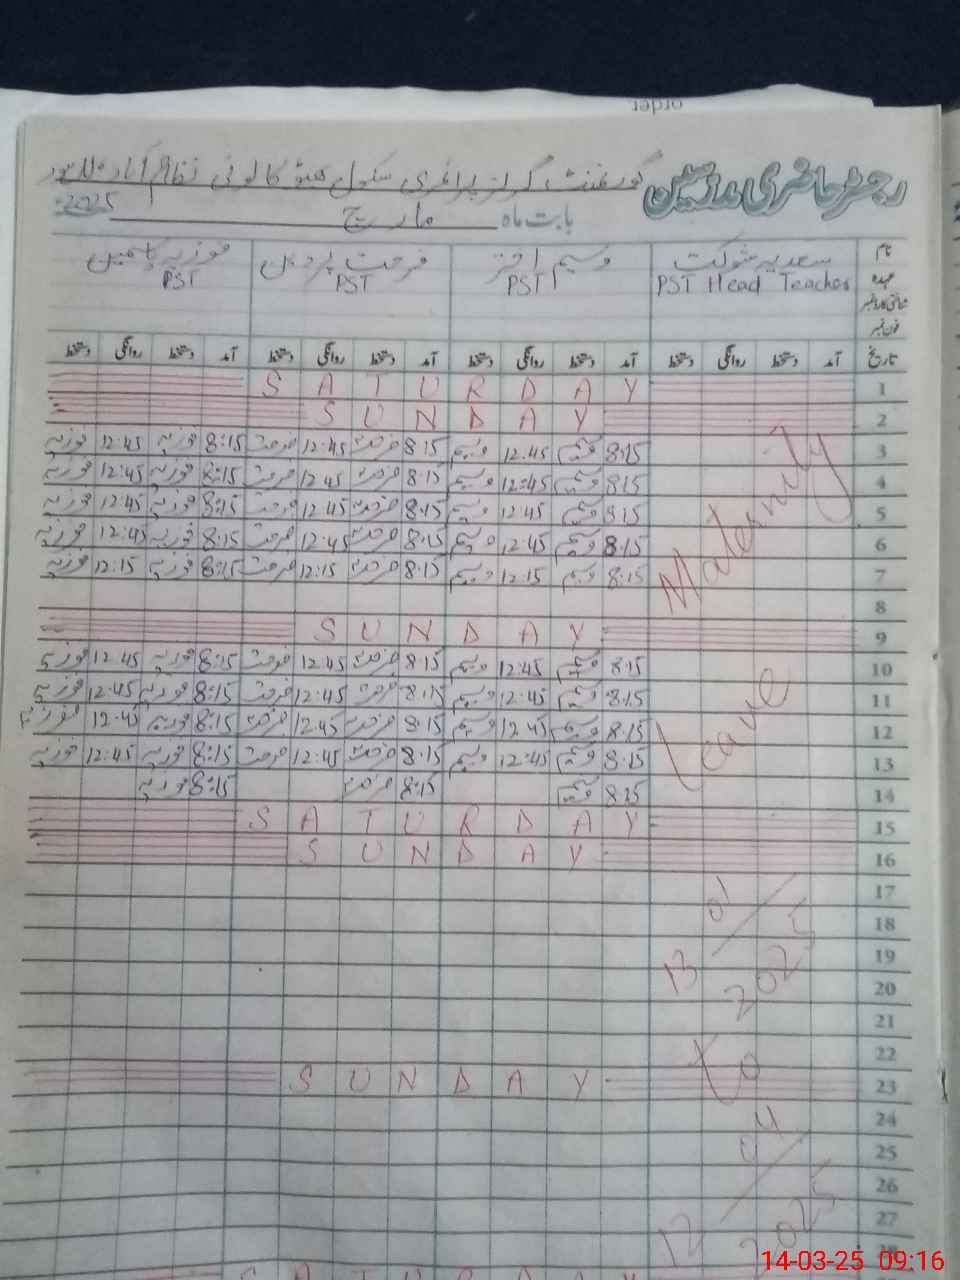 order
رجسٹر حاضری مدرسین گورنمنٹ گرلز پرائمری سکول بھٹو کالونی نظام آباد
بابت ماہ مارچ 2025
نام سعدیہ شوکت وسیم اختر فرحت پروین فوزیہ یاسمین
عہدہ PST Head Teacher PST PST PST
شناختی کارڈ نمبر
فون نمبر
تاریخ آمد دستخط روانگی دستخط آمد دستخط روانگی دستخط آمد دستخط روانگی دستخط آمد دستخط روانگی دستخط
1 SATURDAY
2 SUNDAY
3 8:15 وسیم 12:45 وسیم 8:15 فرحت 12:45 فرحت 8:15 فوزیہ 12:45 فوزیہ
4 8:15 وسیم 12:45 وسیم 8:15 فرحت 12:45 فرحت 8:15 فوزیہ 12:45 فوزیہ
5 8:15 وسیم 12:45 وسیم 8:15 فرحت 12:45 فرحت 8:15 فوزیہ 12:45 فوزیہ
6 8:15 وسیم 12:45 وسیم 8:15 فرحت 12:45 فرحت 8:15 فوزیہ 12:45 فوزیہ
7 8:15 وسیم 12:15 وسیم 8:15 فرحت 12:15 فرحت 8:15 فوزیہ 12:15 فوزیہ
Maternity
8
9 SUNDAY
10 8:15 وسیم 12:45 وسیم 8:15 فرحت 12:45 فرحت 8:15 فوزیہ 12:45 فوزیہ
11 8:15 وسیم 12:45 وسیم 8:15 فرحت 12:45 فرحت 8:15 فوزیہ 12:45 فوزیہ
12 8:15 وسیم 12:45 وسیم 8:15 فرحت 12:45 فرحت 8:15 فوزیہ 12:45 فوزیہ
13 8:15 وسیم 12:45 وسیم 8:15 فرحت 12:45 فرحت 8:15 فوزیہ 12:45 فوزیہ
Leave
14 8:15 وسیم 8:15 فرحت 8:15 فوزیہ
15 SATURDAY
16 SUNDAY
17
18
19
13 01/2025
20
21
22
to
23 SUNDAY
24
25
26
27
12 04/2025
28
SATURDAY
14-03-25 09:16